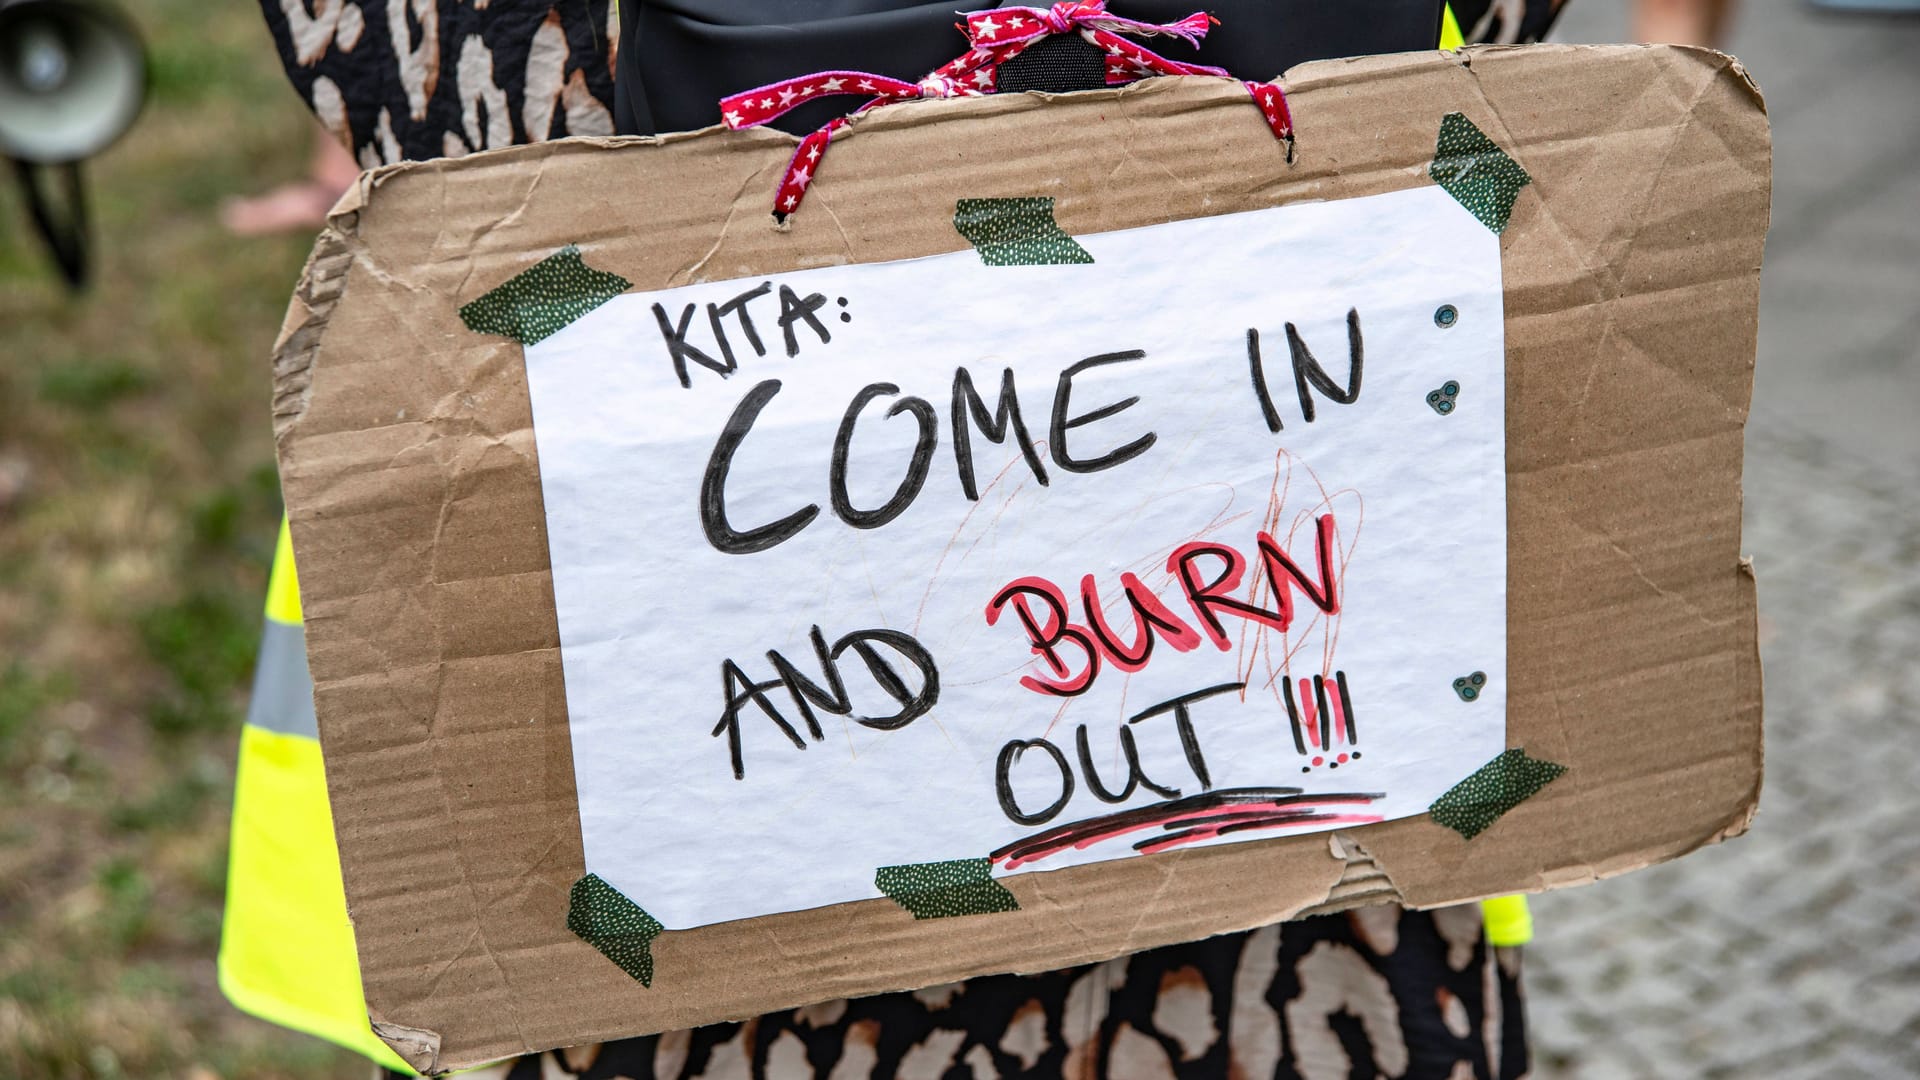 KITA:
COME IN
AND BURN
OUT !!!!